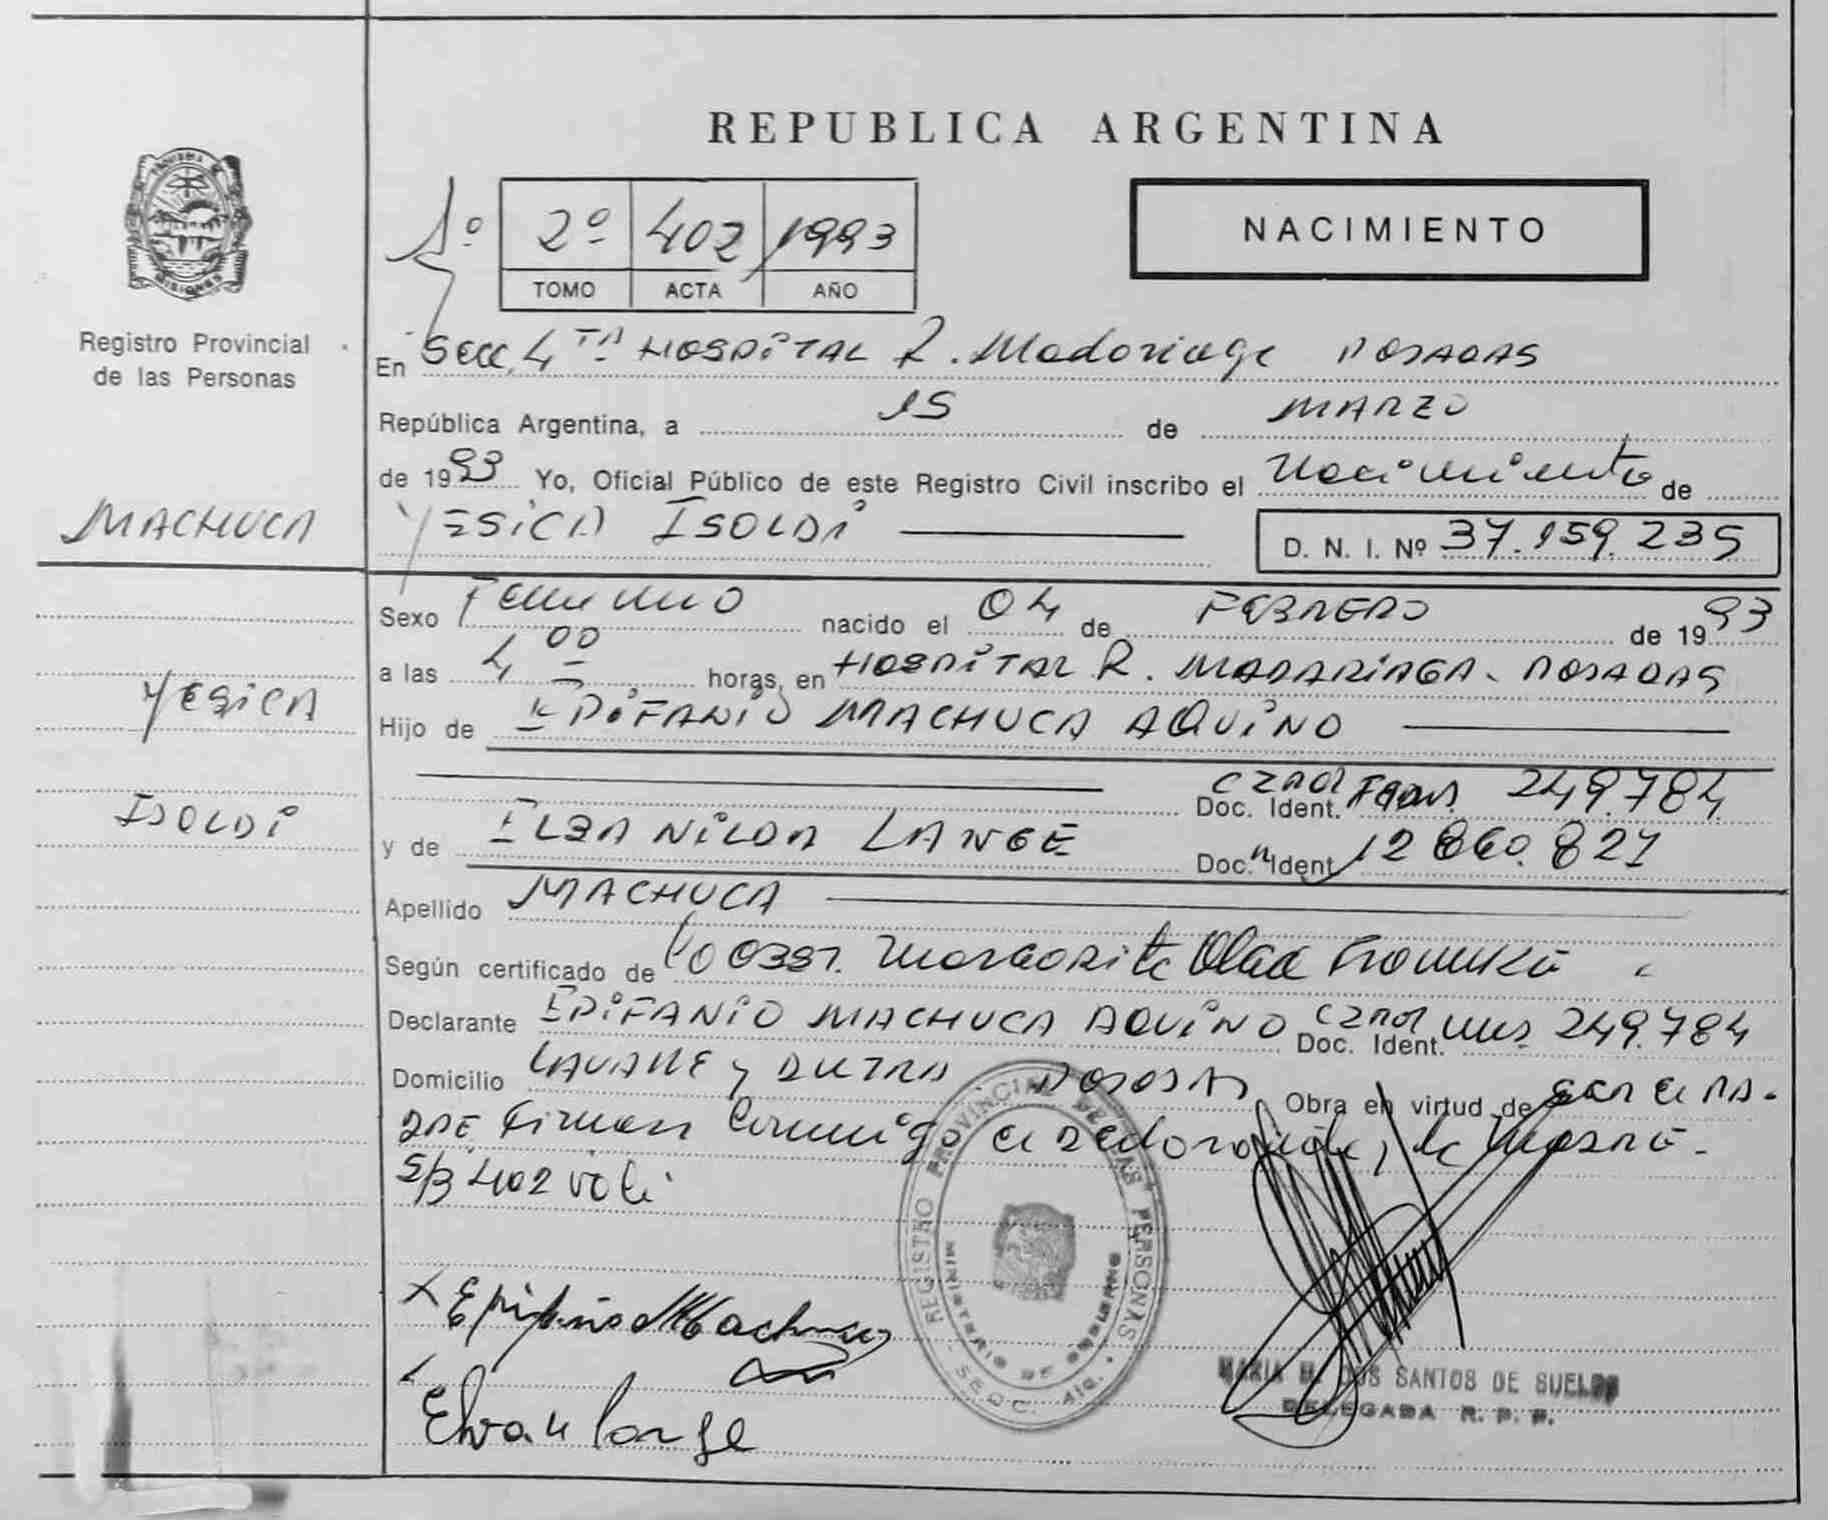 REPUBLICA ARGENTINA
NACIMIENTO
2º 402 1993
TOMO ACTA AÑO
MISIONES
Registro Provincial
de las Personas
MACHUCA
YESICA
ISOLDI
En Secc. 4 TA HOSPITAL R. Madariaga POSADAS
República Argentina, a 15 de MARZO
de 1993 Yo, Oficial Público de este Registro Civil inscribo el Nacimiento de
YESICA ISOLDI
D. N. I. Nº 37.159.235
Sexo Femenino nacido el 04 de FEBRERO de 1993
a las 4 00 horas, en HOSPITAL R. MADARIAGA - POSADAS
Hijo de EPIFANIO MACHUCA AQUINO
Doc. Ident. 249.784
y de NILDA LANGE Doc. Ident 12.860.827
Apellido MACHUCA
Según certificado de Obst. Margarita Olga
Declarante EPIFANIO MACHUCA AQUINO Doc. Ident. 249.784
Domicilio LAVALLE y DUTRA POSADAS Obra en virtud de ser el PA-
DRE Firman Conmigo el declarante y la MADRE-
S/B 402 vale
Epifanio M Machuca
Elva N Lange
REGISTRO PROVINCIAL DE LAS PERSONAS
MINISTERIO DE GOBIERNO
MARIA M. DOS SANTOS DE SUELDO
DELEGADA R. P. P.